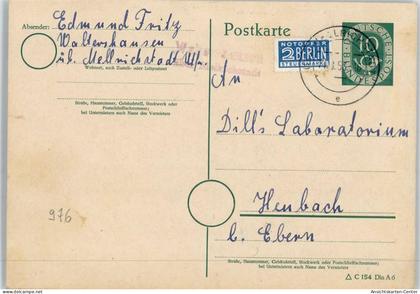 Absender: Edmund Fritz
Waltershausen
üb. Mellrichstadt Ufr.
Wohnort, auch Zustell- oder Leitpostamt
Straße, Hausnummer, Gebäudeteil, Stockwerk oder Postschließfachnummer;
bei Untermietern auch Name des Vermieters
Postkarte
NOTOPFER
2 BERLIN
STEUERMARKE
DEUTSCHE BUNDESPOST
10
An
Dill's Laboratorium
Heubach
b. Ebern
Straße, Hausnummer, Gebäudeteil, Stockwerk oder Postschließfachnummer;
bei Untermietern auch Name des Vermieters
976
△ C 154 Din A 6
AnsichtsKarten-Center